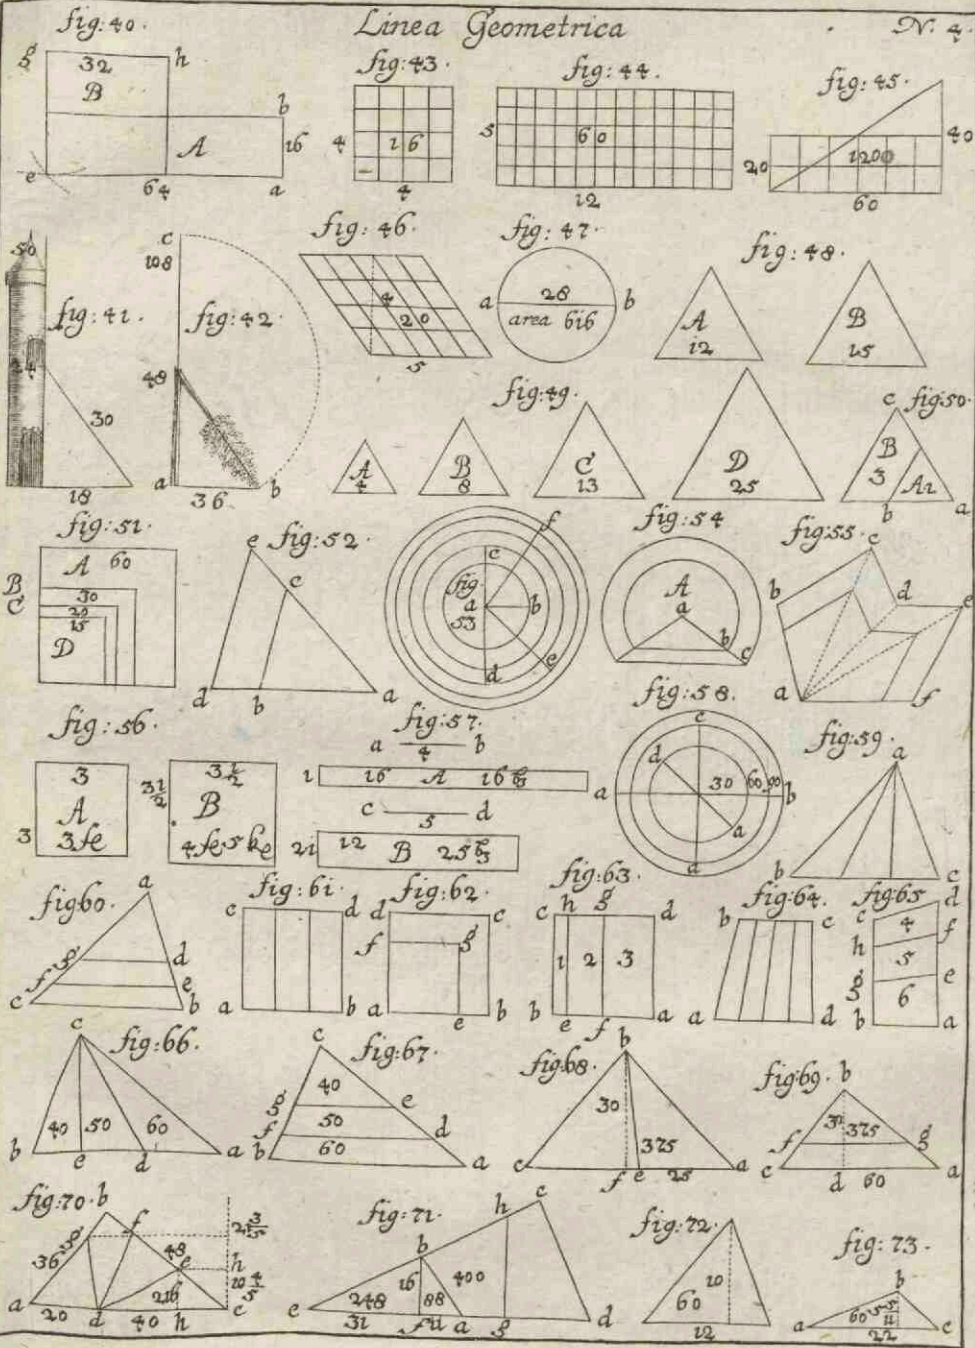 Linea Geometrica N. 4.
fig: 40.
g 32 h
B
b
A 16
e 64 a
fig: 43.
4 16
4
fig: 44.
5 60
12
fig: 45.
40
20 1200
60
50
fig: 41.
24
30
18
c
108
fig: 42.
48
a 36 b
fig: 46.
4
20
5
fig: 47.
a 28 b
area 616
fig: 48.
A B
12 15
fig: 49.
A B C D
4 8 13 25
c fig: 50.
B
3 A1
b a
fig: 51.
A 60
B 30
C 20
15
D
fig: 52.
e
c
d b a
f
c
fig
a b
53
e
d
fig: 54
A
a
b
c
fig: 55.
c
b d e
a f
fig: 56.
3 3 1/2
A 3 1/2 B
3 3 fe 4 fe 5 ke
fig: 57.
a 4 b
1 16 A 16
c 5 d
21 12 B 25
fig: 58.
c
d
a 30 60 90 b
a
d
fig: 59.
a
b c
fig 60.
a
g d
f e
c b
fig: 61.
c d
a b
fig: 62.
d c
f g
a e b
fig: 63.
c h g d
1 2 3
b e f a
fig: 64.
b c
a d
fig: 65
c d
4 f
h 5
g e
6
b a
fig: 66.
c
40 50 60
b e d a
fig: 67.
c
40
g e
50
f d
60
b a
fig: 68.
b
30
375
c f e 25 a
fig: 69.
b
30 375
f g
c d 60 a
fig: 70.
b
g f
36 48
e h
216
a 20 d 40 h c
fig: 71.
h c
b
16 400
248 88
e 31 f 11 a g d
fig: 72.
10
60
12
fig: 73.
b
60 5 5/11
a 22 c